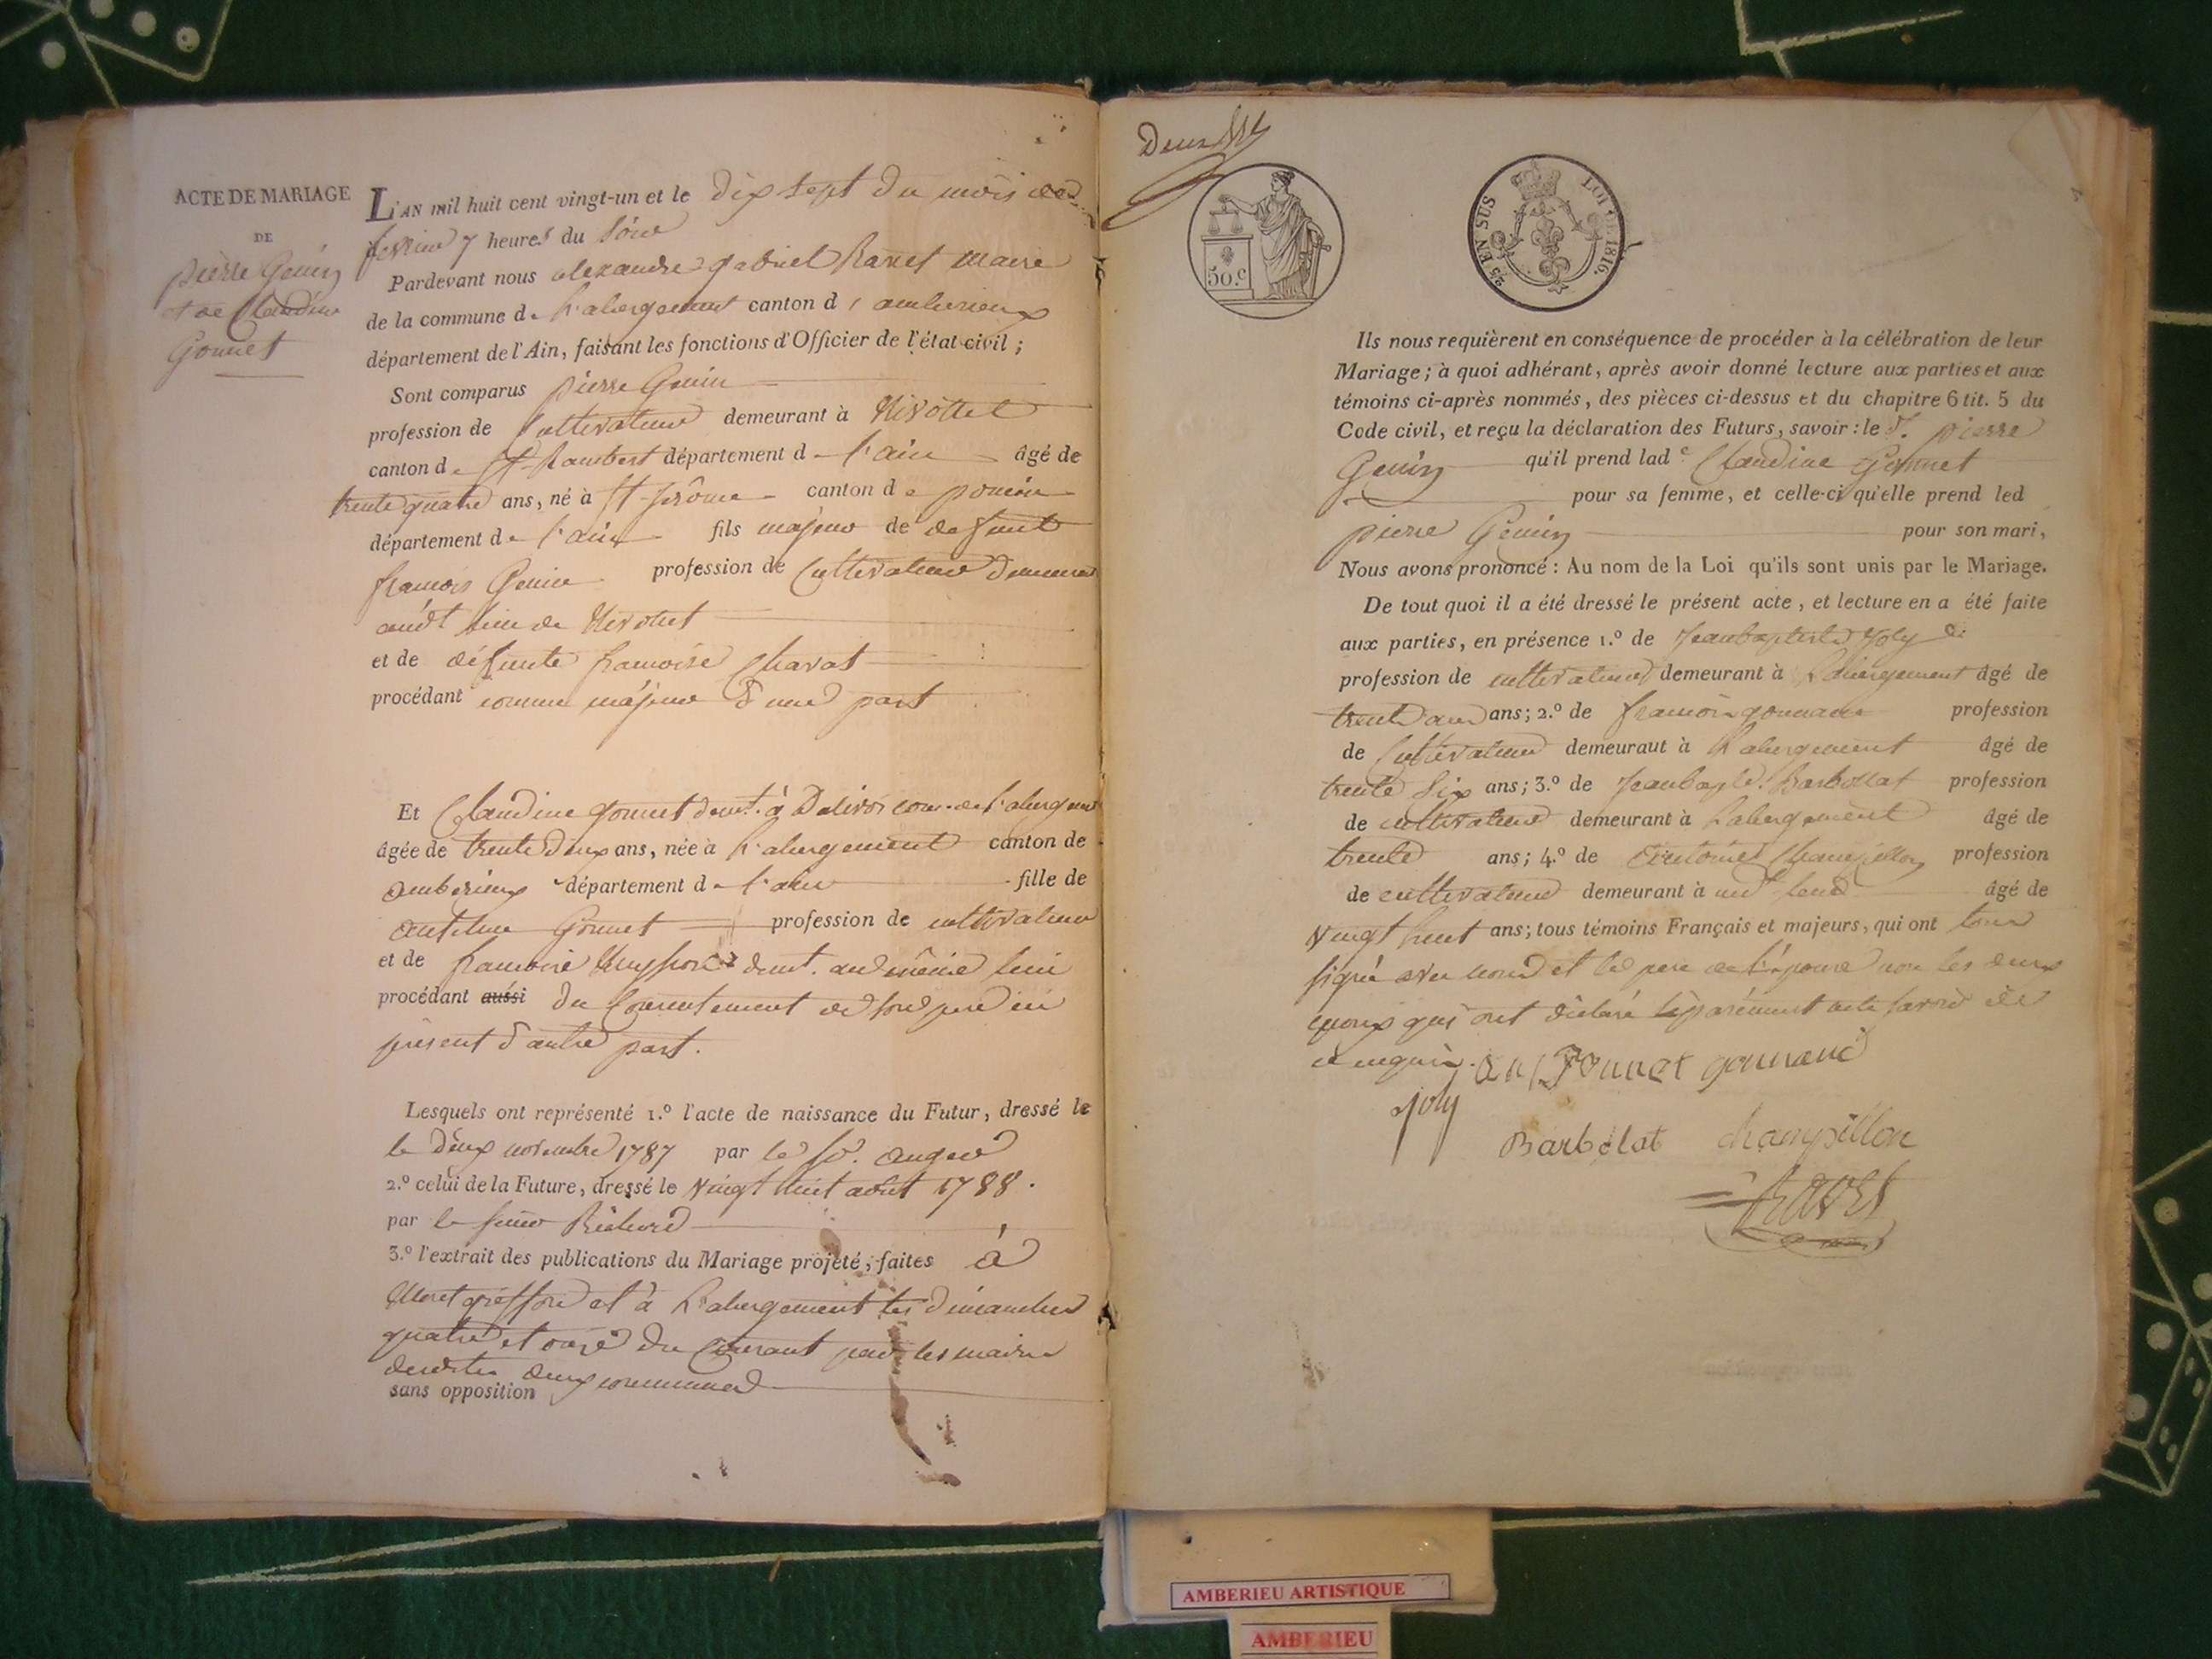 ACTE DE MARIAGE
DE
pierre Genin
et de Claudine
Gonnet
L'AN mil huit cent vingt-un et le dix sept du mois de
fevrier 7 heures du soir
Pardevant nous alexandre gabriel Ravet maire
de la commune de l'abergement canton d'amberieux
département de l'Ain, faisant les fonctions d'Officier de l'état civil ;
Sont comparus pierre Genin
profession de Cultivateur demeurant à Nivollet
canton de St Rambert département de l'ain âgé de
trente quatre ans, né à St jerôme canton de poncin
département de l'ain fils majeur de defunt
francois Genin profession de Cultivateur
lieu de Nivollet
et de défunte francoise Chavat
procédant comme majeur d'une part
Et Claudine gonnet demt. à com. de l'abergement
âgée de trente deux ans, née à l'abergement canton de
amberieux département de l'ain fille de
antelme Gonnet profession de cultivateur
et de francoise demt. au même lieu
procédant aussi du Consentement de son pere ici
présent d'autre part.
Lesquels ont représenté 1.º l'acte de naissance du Futur, dressé le
le deux novembre 1787 par le Sr. auger
2.º celui de la Future, dressé le vingt huit août 1788.
par le sieur
3.º l'extrait des publications du Mariage projeté, faites à
et à l'abergement les dimanches
quatre et onze du Courant par les maires
desdites deux communes
sans opposition
50.c
25 EN SUS
LOI DE 1816.
Ils nous requièrent en conséquence de procéder à la célébration de leur
Mariage ; à quoi adhérant, après avoir donné lecture aux parties et aux
témoins ci-après nommés, des pièces ci-dessus et du chapitre 6 tit. 5 du
Code civil, et reçu la déclaration des Futurs, savoir : le S. pierre
Genin qu'il prend lade Claudine Gonnet
pour sa femme, et celle-ci qu'elle prend led
pierre Genin pour son mari,
Nous avons prononcé : Au nom de la Loi qu'ils sont unis par le Mariage.
De tout quoi il a été dressé le présent acte, et lecture en a été faite
aux parties, en présence 1.º de Jeanbaptiste Joly
profession de cultivateur demeurant à l'abergement âgé de
trente ans; 2.º de francois gonnand profession
de Cultivateur demeurant à l'abergement âgé de
trente six ans; 3.º de Jeanbapte. Barbollat profession
de cultivateur demeurant à l'abergement âgé de
trente ans; 4.º de antoine Champillon profession
de cultivateur demeurant à âgé de
vingt huit ans; tous témoins Français et majeurs, qui ont tous
signé avec nous et le pere de l'épouse non les deux
epoux qui ont déclaré séparément ne le savoir de
ce enquis.
an gonnet gonnand
joly
Barbolat champillon
Ravet
AMBERIEU ARTISTIQUE
AMBERIEU